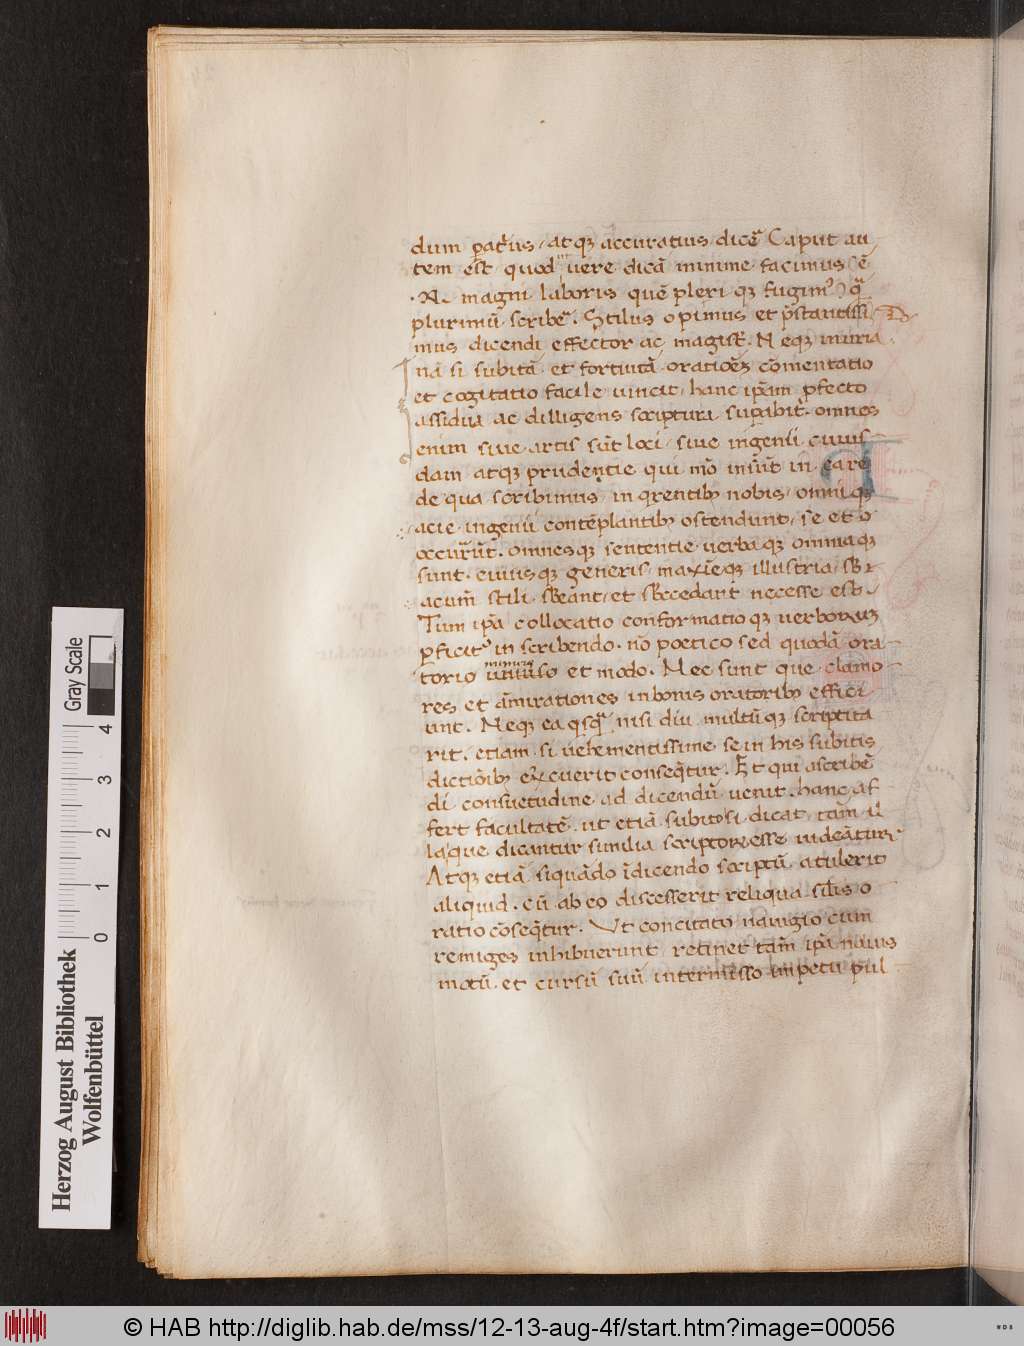 dum pat̃ius atqȝ accuratius dicẽ Caput au
tem est quod uere dicã minime facimus ẽ
.N. magni laboris quẽ pleri qȝ fugimꝰ qͣ
plurimũ scribeꝰ. Stilus optimus et p̃stantissi
mus dicendi effector ac magist̃. Neqȝ iniuria
nã si subitã et fortuitã orationẽ cõmentatio
et cogitatio facile uincit, hanc ip̃am ꝓfecto
assidua ac dilligens scriptura suꝑabit. omnes
enim siue artis sũt loci, siue ingenii cuius
dam atqȝ prudentie qui mõ insũt in ea re
de qua scribimus, inq̃rentibꝰ nobis, omni qȝ
acie ingenii contẽplantibꝰ ostendunt, se et o
ccurũt. omnesqȝ sententie uerba qȝ omnia qȝ
sunt cuiusqȝ generis maxĩeqȝ illustria, sb̃
acum̃ stili sb̃eant, et sb̃cedant necesse est.
Tum ip̃a collocatio conformatio qȝ uerborum
ꝑficitꝰ in scribendo nõ poetico sed quodã ora
torio numero et modo. Nec sunt que clamo
res et ãmirationes in bonis oratoribꝰ effici
unt. Neqȝ ea qͥsqͣ nisi diu multũqȝ scriptita
rit. etiam si uehementissime se in his subitis
dictiõibꝰ exercuerit conseq̃tur. Et qui a scribẽ
di consuetudine ad dicendũ uenit. hanc af
fert facultatẽ ut etiã subito si dicat, tam̃ il
la que dicantur similia scriptor esse uideãtur
Atqȝ etiã siquãdo ĩ dicendo scriptũ atulerit
aliquid. cũ ab eo discesserit reliqua sil̃is o
ratio cõseq̃tur. Vt concitato nauigio cum
remiges inhibuerunt retinet tam̃ ip̃a nauis
motũ et cursũ suũ intermisso impetu pul
Herzog August Bibliothek
Wolfenbüttel
Gray Scale
0 1 2 3 4
© HAB http://diglib.hab.de/mss/12-13-aug-4f/start.htm?image=00056